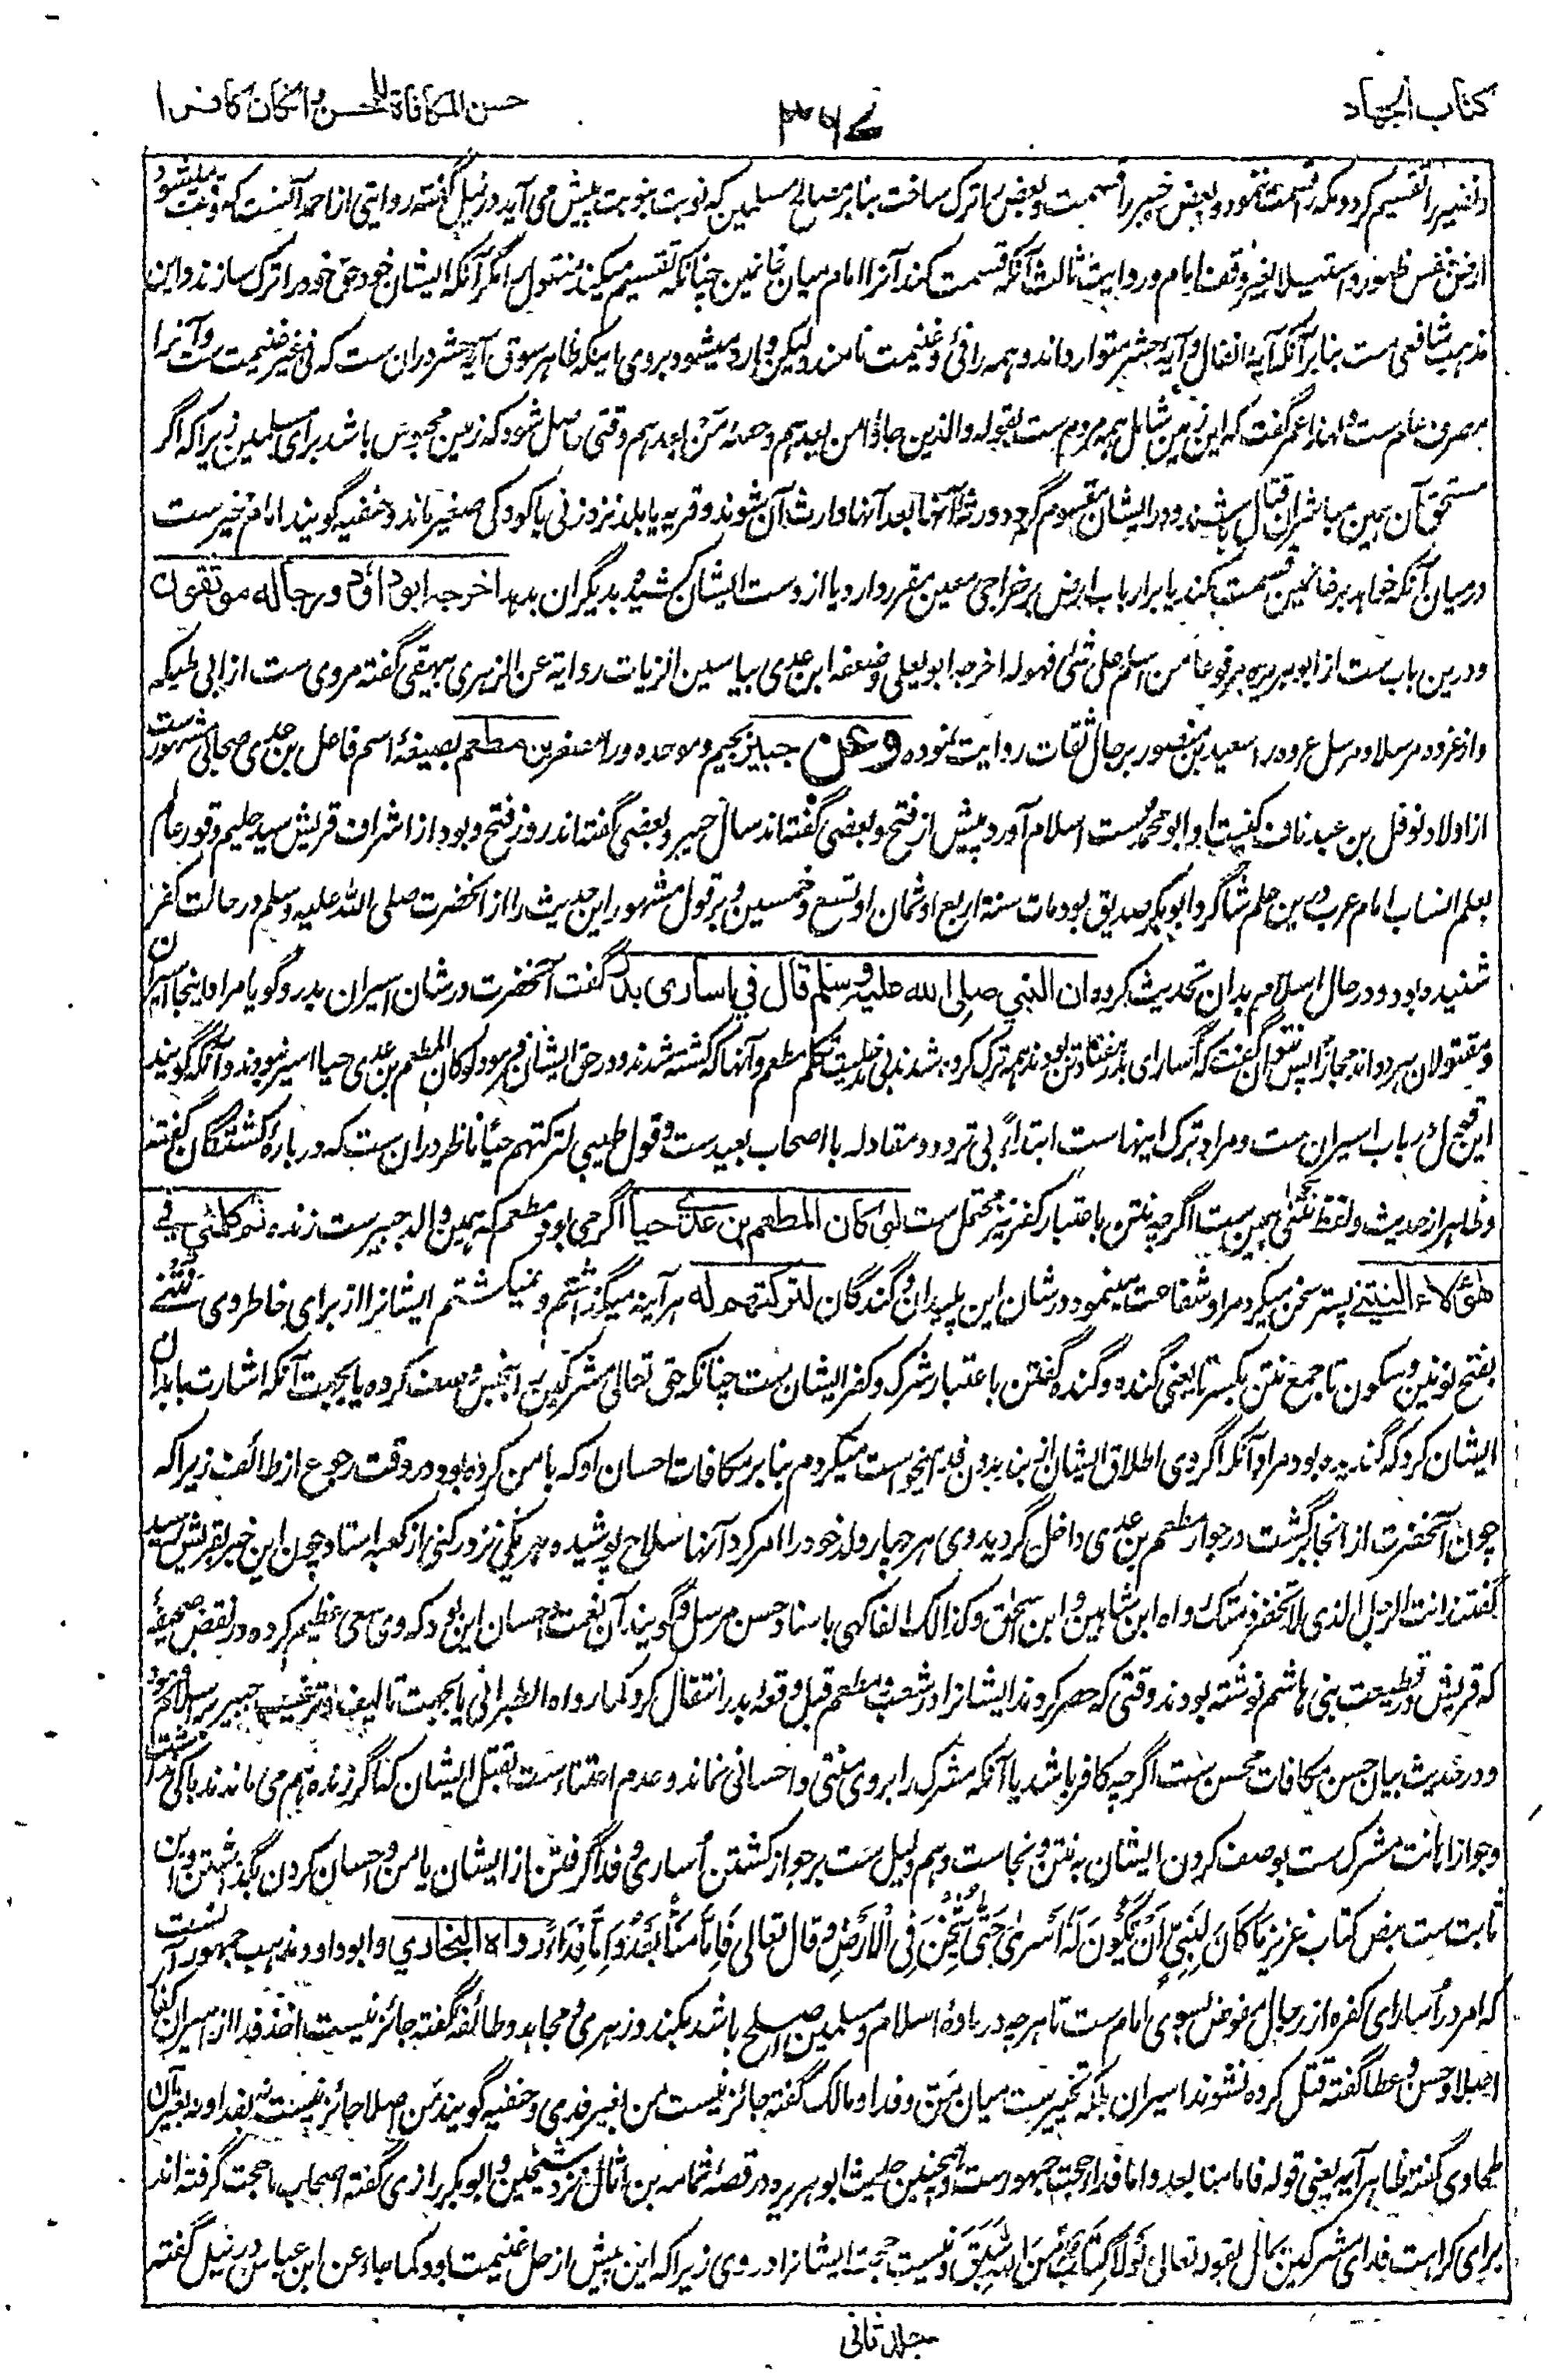 کتاب الجهاد
۳۶۷
حسن المکافاة للمحسن و انکان کافرا
و نضیر را تقسیم کرد و مکه را قسمت ننمود و بعض خیبر را قسمت و بعض را ترک ساخت بنابر مصالح مسلمین که نوبت بنوبت پیش می آید و در نیل گفته روایتی از احمد آنست که وقف میشود
ارض بنفس ظهور و استیلا بغیر وقف امام و روایت ثالث آنکه قسمت کند آنرا امام میان غانمین چنانکه تقسیم میکند منقول را مگر آنکه ایشان خود حق خود را ترک سازند و این
مذهب شافعی ست بنابر آنکه آیۀ انفال و آیۀ حشر متوارداند و همه را فئ و غنیمت نامند و لیکن وارد میشود بروی اینکه ظاهر سوق آیۀ حشر در آن ست که فئ غیر غنیمت ست و آنرا
مصرف عام ست و لهذا عمر گفت که این زمین شامل همه مردم ست بقوله والذین جاؤا من بعدهم و حصۀ من بعدهم وقتی حاصل شود که زمین محبوس باشد برای مسلمین زیرا که اگر
مستحق آن همین مباشران قتال باشند و در ایشان مقسوم گردد ورثۀ آنها بعد آنها وارث آن شوند و قریه یا بلد نزد زنی یا کودکی صغیر ماند و حنفیه گویند امام مخیر ست
درمیان آنکه خواهد بر غانمین قسمت کند یا بر ارباب ارض بر خراجی معین مقرر دارد یا از دست ایشان کشیده بدیگران بدهد اخرجه ابو داؤد و رجاله موثقون
و درین باب ست از ابو هریره مرفوعا من اسلم علی شئ فهو له اخرجه ابو یعلی و ضعفه ابن عدی بیاسین الزیات روایة عن الزهری بیهقی گفته مروی ست از ابن ابی ملیکه
و از عروه مرسلا و مرسل عروه را سعید بن منصور برجال ثقات روایت نموده وعن جبیر بجیم و موحده و راء مصغر بن مطعم بصیغۀ اسم فاعل بن عدی صحابی مشهور ست
از اولاد نوفل بن عبد مناف کنیت او ابو محمد ست اسلام آورد پیش از فتح و بعضی گفته اند سال خیبر و بعضی گفته اند روز فتح و بود از اشراف قریش سید حلیم وقور عالم
بعلم انساب امام عرب درین علم شاگرد ابو بکر صدیق بود مات سنة اربع او ثمان او تسع و خمسین و بر قول مشهور این حدیث را از آنحضرت صلی الله علیه وسلم در حالت کفر
شنیده بود و در حال اسلام بدان تحدیث کرده ان النبي صلی الله علیه وسلم قال في اسارى بدر گفت آنحضرت در شان اسیران بدر و گویا مراد اینجا اسیران
و مقتولان هر دو اند مجازا پس نتوان گفت که اسارای بدر هفتاد تن بودند همه ترک کرده شدند بی مدخلیت تکلم مطعم و آنها که کشته شدند و در حق ایشان فرمود لو کان المطعم بن عدی حیا اسیر نبودند و آنکه گویند
این قول در باب اسیران ست و مراد ترک اینها ست ابتداءً بی تردد و مقاوله با اصحاب بعید ست و قول طیبی لترکتهم حیاً ناظر در آن ست که دربارۀ کشتگان گفته
و ظاهر از حدیث و لفظ نتنی همین ست اگرچه نتن باعتبار کفر نیز محتمل ست لو کان المطعم بن عدی حیا اگر می بود مطعم که همین والد جبیر ست زنده ثم کلمني في
هؤلاء النتنى پستر سخن میکرد مرا و شفاعت مینمود در شان این پلیدان و گندگان لتركتهم له هر آینه میگذاشتم و نمیکشتم ایشانرا از برای خاطر وی نتنی
بفتح نونین و سکون تا جمع نتن بکسر تا یعنی گنده و گنده گفتن باعتبار شرک و کفر ایشان ست چنانکه حق تعالی مشرکین را به نجس وصف کرده یا بجهت آنکه اشارت بابدان
ایشان کرد که گندیده بود مراد آنکه اگر وی اطلاق ایشان از من بدون فدا میخواست میکردم بنابر مکافات احسان او که با من کرده بود در وقت رجوع از طائف زیرا که
چون آنحضرت از آنجا برگشت در جوار مطعم بن عدی داخل گردید و وی هر چهار ولد خود را امر کرد آنها سلاح پوشیده هر یکی نزد رکنی از کعبه استاد چون این خبر بقریش رسید
گفتند انت الرجل الذی لا تخفر ذمتک رواه ابن شاهین و ابن اسحق و کذالک الفاکهی باسناد حسن مرسل و گویند آن نعمت و احسان این بود که وی سعی عظیم کرده در نقض صحیفۀ
که قریش در قطیعت بنی هاشم نوشته بودند وقتی که حصر کردند ایشانرا در شعب و مطعم قبل وقعۀ بدر انتقال کرد کما رواه الطبرانی یا بجهت تالیف و ترغیب جبیر بر اسلام فرمود
و در حدیث بیان حسن مکافات محسن ست اگرچه کافر باشد یا آنکه مشرک را بر وی منتی و احسانی نماند و عدم اعتناء ست بقتل ایشان کانه اگر زنده هم می ماندند باکی نداشت
و جواز اهانت مشرک ست بوصف کردن ایشان به نتن و نجاست و هم دلیل ست بر جواز کشتن اساری و فدا گرفتن از ایشان یا من و احسان کردن بگذاشتن و این
ثابت ست بنص کتاب عزیز مَا كَانَ لِنَبِيٍّ اَنْ يَّكُوْنَ لَهٗ اَسْرٰى حَتّٰى يُثْخِنَ فِي الْاَرْضِ و قال تعالی فَاِمَّا مَنًّا بَعْدُ وَ اِمَّا فِدَاءً رواه البخاري و ابو داود و مذهب جمهور آنست
که امر در اسارای کفره از رجال مفوض بسوی امام ست تا هرچه دربارۀ اسلام و مسلمین اصلح باشد بکند و زهری و مجاهد و طائفه گفته جائز نیست اخذ فدا از اسیران کفار
اصلا و حسن و عطا گفته قتل کرده نشوند اسیران بلکه تخییر ست میان من و فدا و مالک گفته جائز نیست من بغیر فدی و حنفیه گویند من اصلا جائز نیست نه بفدا و نه بغیر آن
طحاوی گفته ظاهر آیه یعنی قوله فاما منا بعد و اما فداء حجت جمهور ست و همچنین حدیث ابو هریره در قصۀ ثمامه بن اثال نزد شیخین و ابو بکر رازی گفته اصحاب ما حجت گرفته اند
برای کراهت فدای مشرکین بمال بقوله تعالی لَوْلَا كِتَابٌ مِّنَ اللهِ سَبَقَ و نیست حجت ایشانرا در وی زیرا که این پیش از حل غنیمت بود کما جاء عن ابن عباس در نیل گفته
جلد ثانی